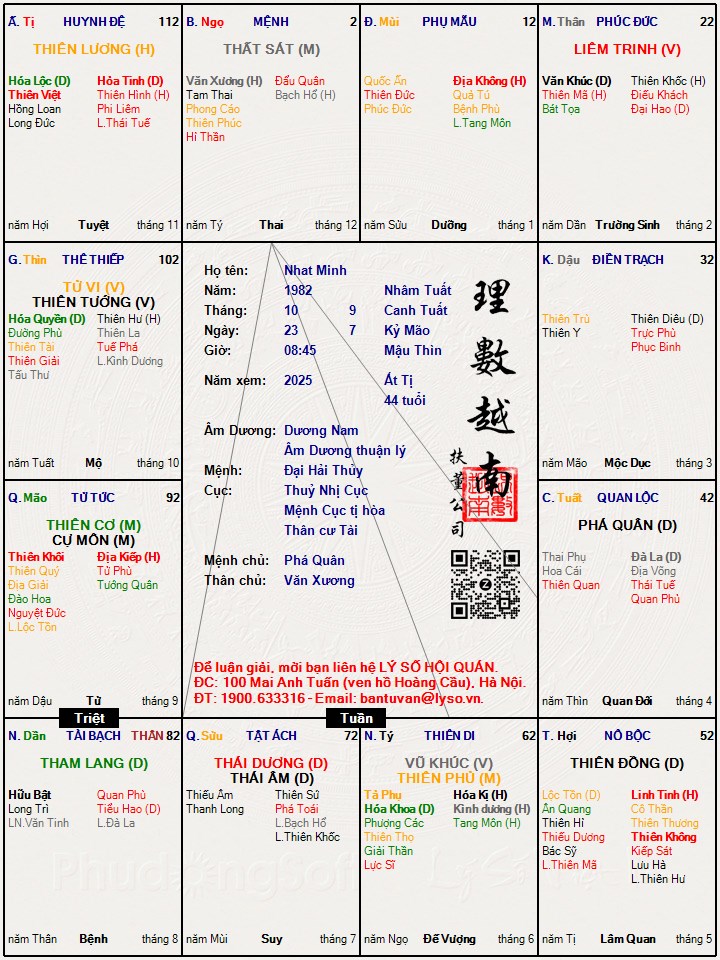 Ấ. Tị HUYNH ĐỆ 112
THIÊN LƯƠNG (H)
Hóa Lộc (Đ) Hỏa Tinh (Đ)
Thiên Việt Thiên Hình (H)
Hồng Loan Phi Liêm
Long Đức L.Thái Tuế
năm Hợi Tuyệt tháng 11
B. Ngọ MỆNH 2
THẤT SÁT (M)
Văn Xương (H) Đẩu Quân
Tam Thai Bạch Hổ (H)
Phong Cáo
Thiên Phúc
Hỉ Thần
năm Tý Thai tháng 12
Đ. Mùi PHỤ MẪU 12
Quốc Ấn Địa Không (H)
Thiên Đức Quả Tú
Phúc Đức Bệnh Phù
L.Tang Môn
năm Sửu Dưỡng tháng 1
M. Thân PHÚC ĐỨC 22
LIÊM TRINH (V)
Văn Khúc (Đ) Thiên Khốc (H)
Thiên Mã (H) Điếu Khách
Bát Tọa Đại Hao (Đ)
năm Dần Trường Sinh tháng 2
G. Thìn THÊ THIẾP 102
TỬ VI (V)
THIÊN TƯỚNG (V)
Hóa Quyền (Đ) Thiên Hư (H)
Đường Phù Thiên La
Thiên Tài Tuế Phá
Thiên Giải L.Kình Dương
Tấu Thư
năm Tuất Mộ tháng 10
Họ tên: Nhat Minh
Năm: 1982 Nhâm Tuất
Tháng: 10 9 Canh Tuất
Ngày: 23 7 Kỷ Mão
Giờ: 08:45 Mậu Thìn
Năm xem: 2025 Ất Tị
44 tuổi
Âm Dương: Dương Nam
Âm Dương thuận lý
Mệnh: Đại Hải Thủy
Cục: Thuỷ Nhị Cục
Mệnh Cục tị hòa
Thân cư Tài
Mệnh chủ: Phá Quân
Thân chủ: Văn Xương
理數越南
扶董公司
K. Dậu ĐIỀN TRẠCH 32
Thiên Trù Thiên Diêu (Đ)
Thiên Y Trực Phù
Phục Binh
năm Mão Mộc Dục tháng 3
Q. Mão TỬ TỨC 92
THIÊN CƠ (M)
CỰ MÔN (M)
Thiên Khôi Địa Kiếp (H)
Thiên Quý Tử Phù
Địa Giải Tướng Quân
Đào Hoa
Nguyệt Đức
L.Lộc Tồn
năm Dậu Tử tháng 9
C. Tuất QUAN LỘC 42
PHÁ QUÂN (Đ)
Thai Phụ Đà La (Đ)
Hoa Cái Địa Võng
Thiên Quan Thái Tuế
Quan Phủ
năm Thìn Quan Đới tháng 4
Để luận giải, mời bạn liên hệ LÝ SỐ HỘI QUÁN.
ĐC: 100 Mai Anh Tuấn (ven hồ Hoàng Cầu), Hà Nội.
ĐT: 1900.633316 - Email: bantuvan@lyso.vn.
Triệt
Tuần
N. Dần TÀI BẠCH THÂN 82
THAM LANG (Đ)
Hữu Bật Quan Phù
Long Trì Tiểu Hao (Đ)
LN.Văn Tinh L.Đà La
năm Thân Bệnh tháng 8
Q. Sửu TẬT ÁCH 72
THÁI DƯƠNG (Đ)
THÁI ÂM (Đ)
Thiếu Âm Thiên Sứ
Thanh Long Phá Toái
L.Bạch Hổ
L.Thiên Khốc
năm Mùi Suy tháng 7
N. Tý THIÊN DI 62
VŨ KHÚC (V)
THIÊN PHỦ (M)
Tả Phụ Hóa Kị (H)
Hóa Khoa (Đ) Kình dương (H)
Phượng Các Tang Môn (H)
Thiên Thọ
Giải Thần
Lực Sĩ
năm Ngọ Đế Vượng tháng 6
T. Hợi NÔ BỘC 52
THIÊN ĐỒNG (Đ)
Lộc Tồn (Đ) Linh Tinh (H)
Ân Quang Cô Thần
Thiên Hỉ Thiên Thương
Thiếu Dương Thiên Không
Bác Sỹ Kiếp Sát
L.Thiên Mã Lưu Hà
L.Thiên Hư
năm Tị Lâm Quan tháng 5